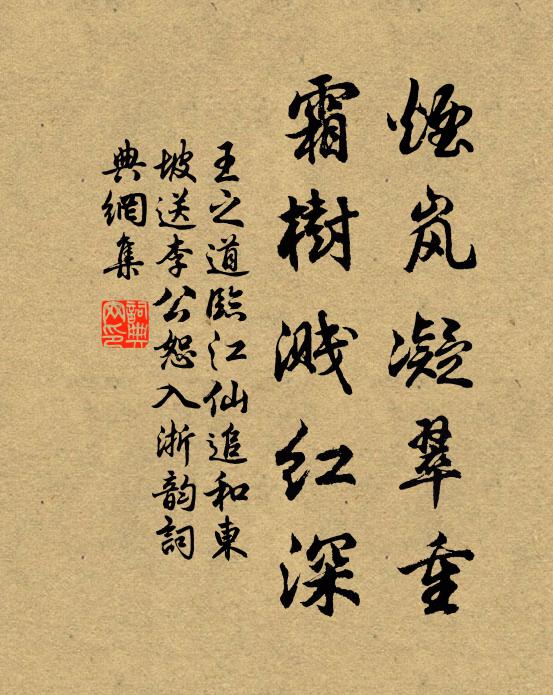 煙岚凝翠重
霜樹溅红深
王之道臨江仙追和東
坡送李公恕入浙韵詞
典網集
詞典
网印